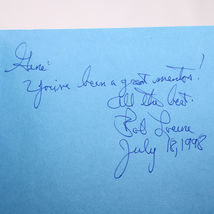 Gene:
You've been a great mentor!
All the best.
Rob
July 18, 1998